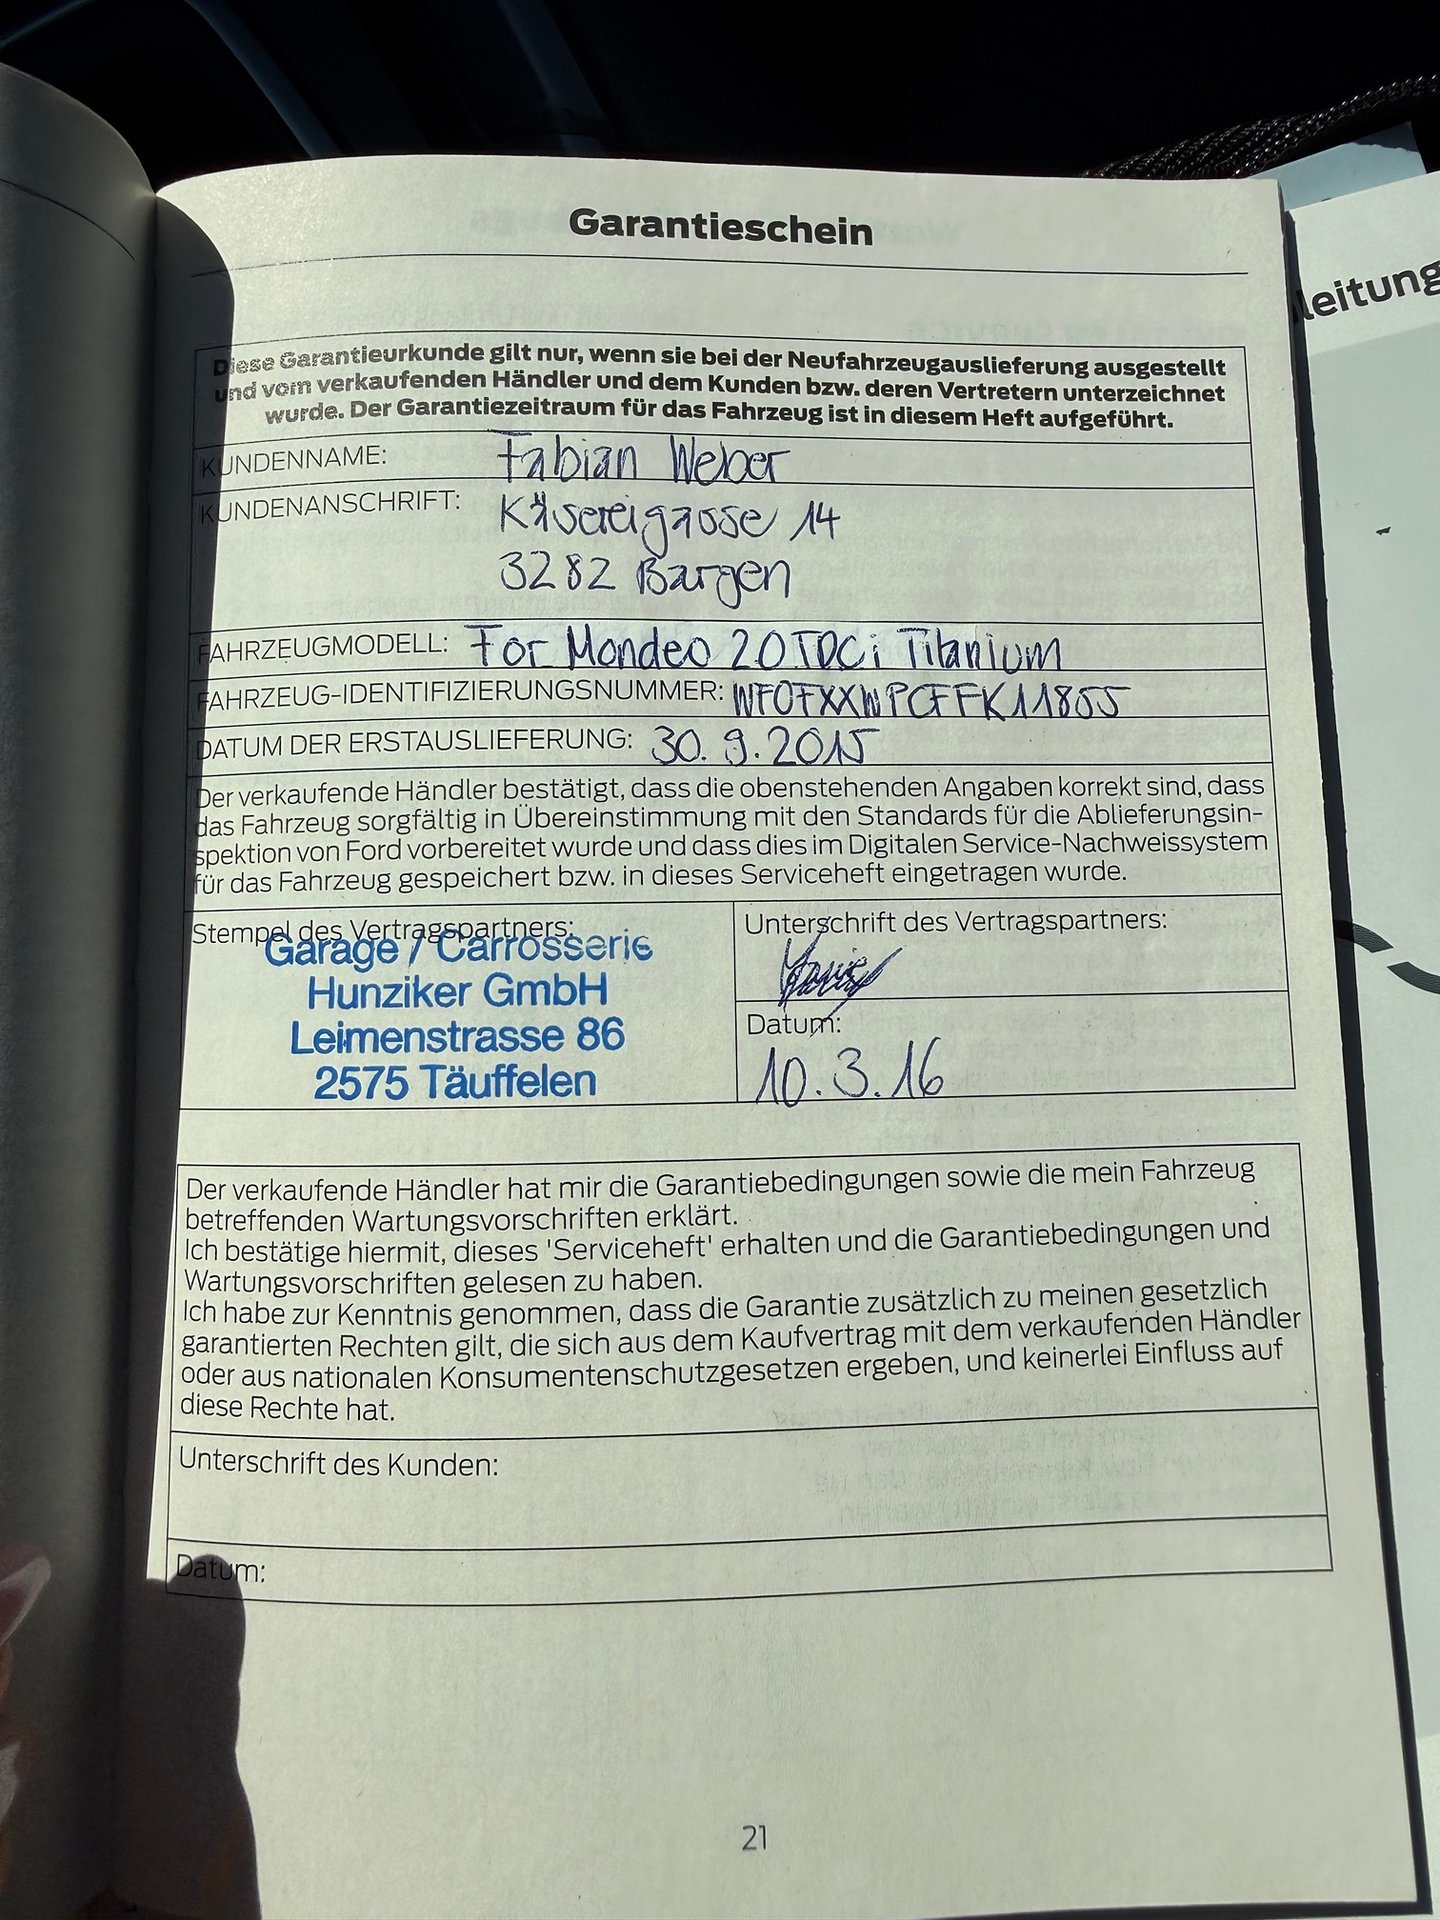 Garantieschein
leitung
Diese Garantieurkunde gilt nur, wenn sie bei der Neufahrzeugauslieferung ausgestellt
und vom verkaufenden Händler und dem Kunden bzw. deren Vertretern unterzeichnet
wurde. Der Garantiezeitraum für das Fahrzeug ist in diesem Heft aufgeführt.
KUNDENNAME: Fabian Weber
KUNDENANSCHRIFT: Käsereigasse 14
3282 Bargen
FAHRZEUGMODELL: For Mondeo 2.0 TDCi Titanium
FAHRZEUG-IDENTIFIZIERUNGSNUMMER: WF0FXXWPCFFK11855
DATUM DER ERSTAUSLIEFERUNG: 30. 9. 2015
Der verkaufende Händler bestätigt, dass die obenstehenden Angaben korrekt sind, dass
das Fahrzeug sorgfältig in Übereinstimmung mit den Standards für die Ablieferungsin-
spektion von Ford vorbereitet wurde und dass dies im Digitalen Service-Nachweissystem
für das Fahrzeug gespeichert bzw. in dieses Serviceheft eingetragen wurde.
Stempel des Vertragspartners:
Garage / Carrosserie
Hunziker GmbH
Leimenstrasse 86
2575 Täuffelen
Unterschrift des Vertragspartners:
Datum:
10. 3. 16
Der verkaufende Händler hat mir die Garantiebedingungen sowie die mein Fahrzeug
betreffenden Wartungsvorschriften erklärt.
Ich bestätige hiermit, dieses 'Serviceheft' erhalten und die Garantiebedingungen und
Wartungsvorschriften gelesen zu haben.
Ich habe zur Kenntnis genommen, dass die Garantie zusätzlich zu meinen gesetzlich
garantierten Rechten gilt, die sich aus dem Kaufvertrag mit dem verkaufenden Händler
oder aus nationalen Konsumentenschutzgesetzen ergeben, und keinerlei Einfluss auf
diese Rechte hat.
Unterschrift des Kunden:
Datum:
21